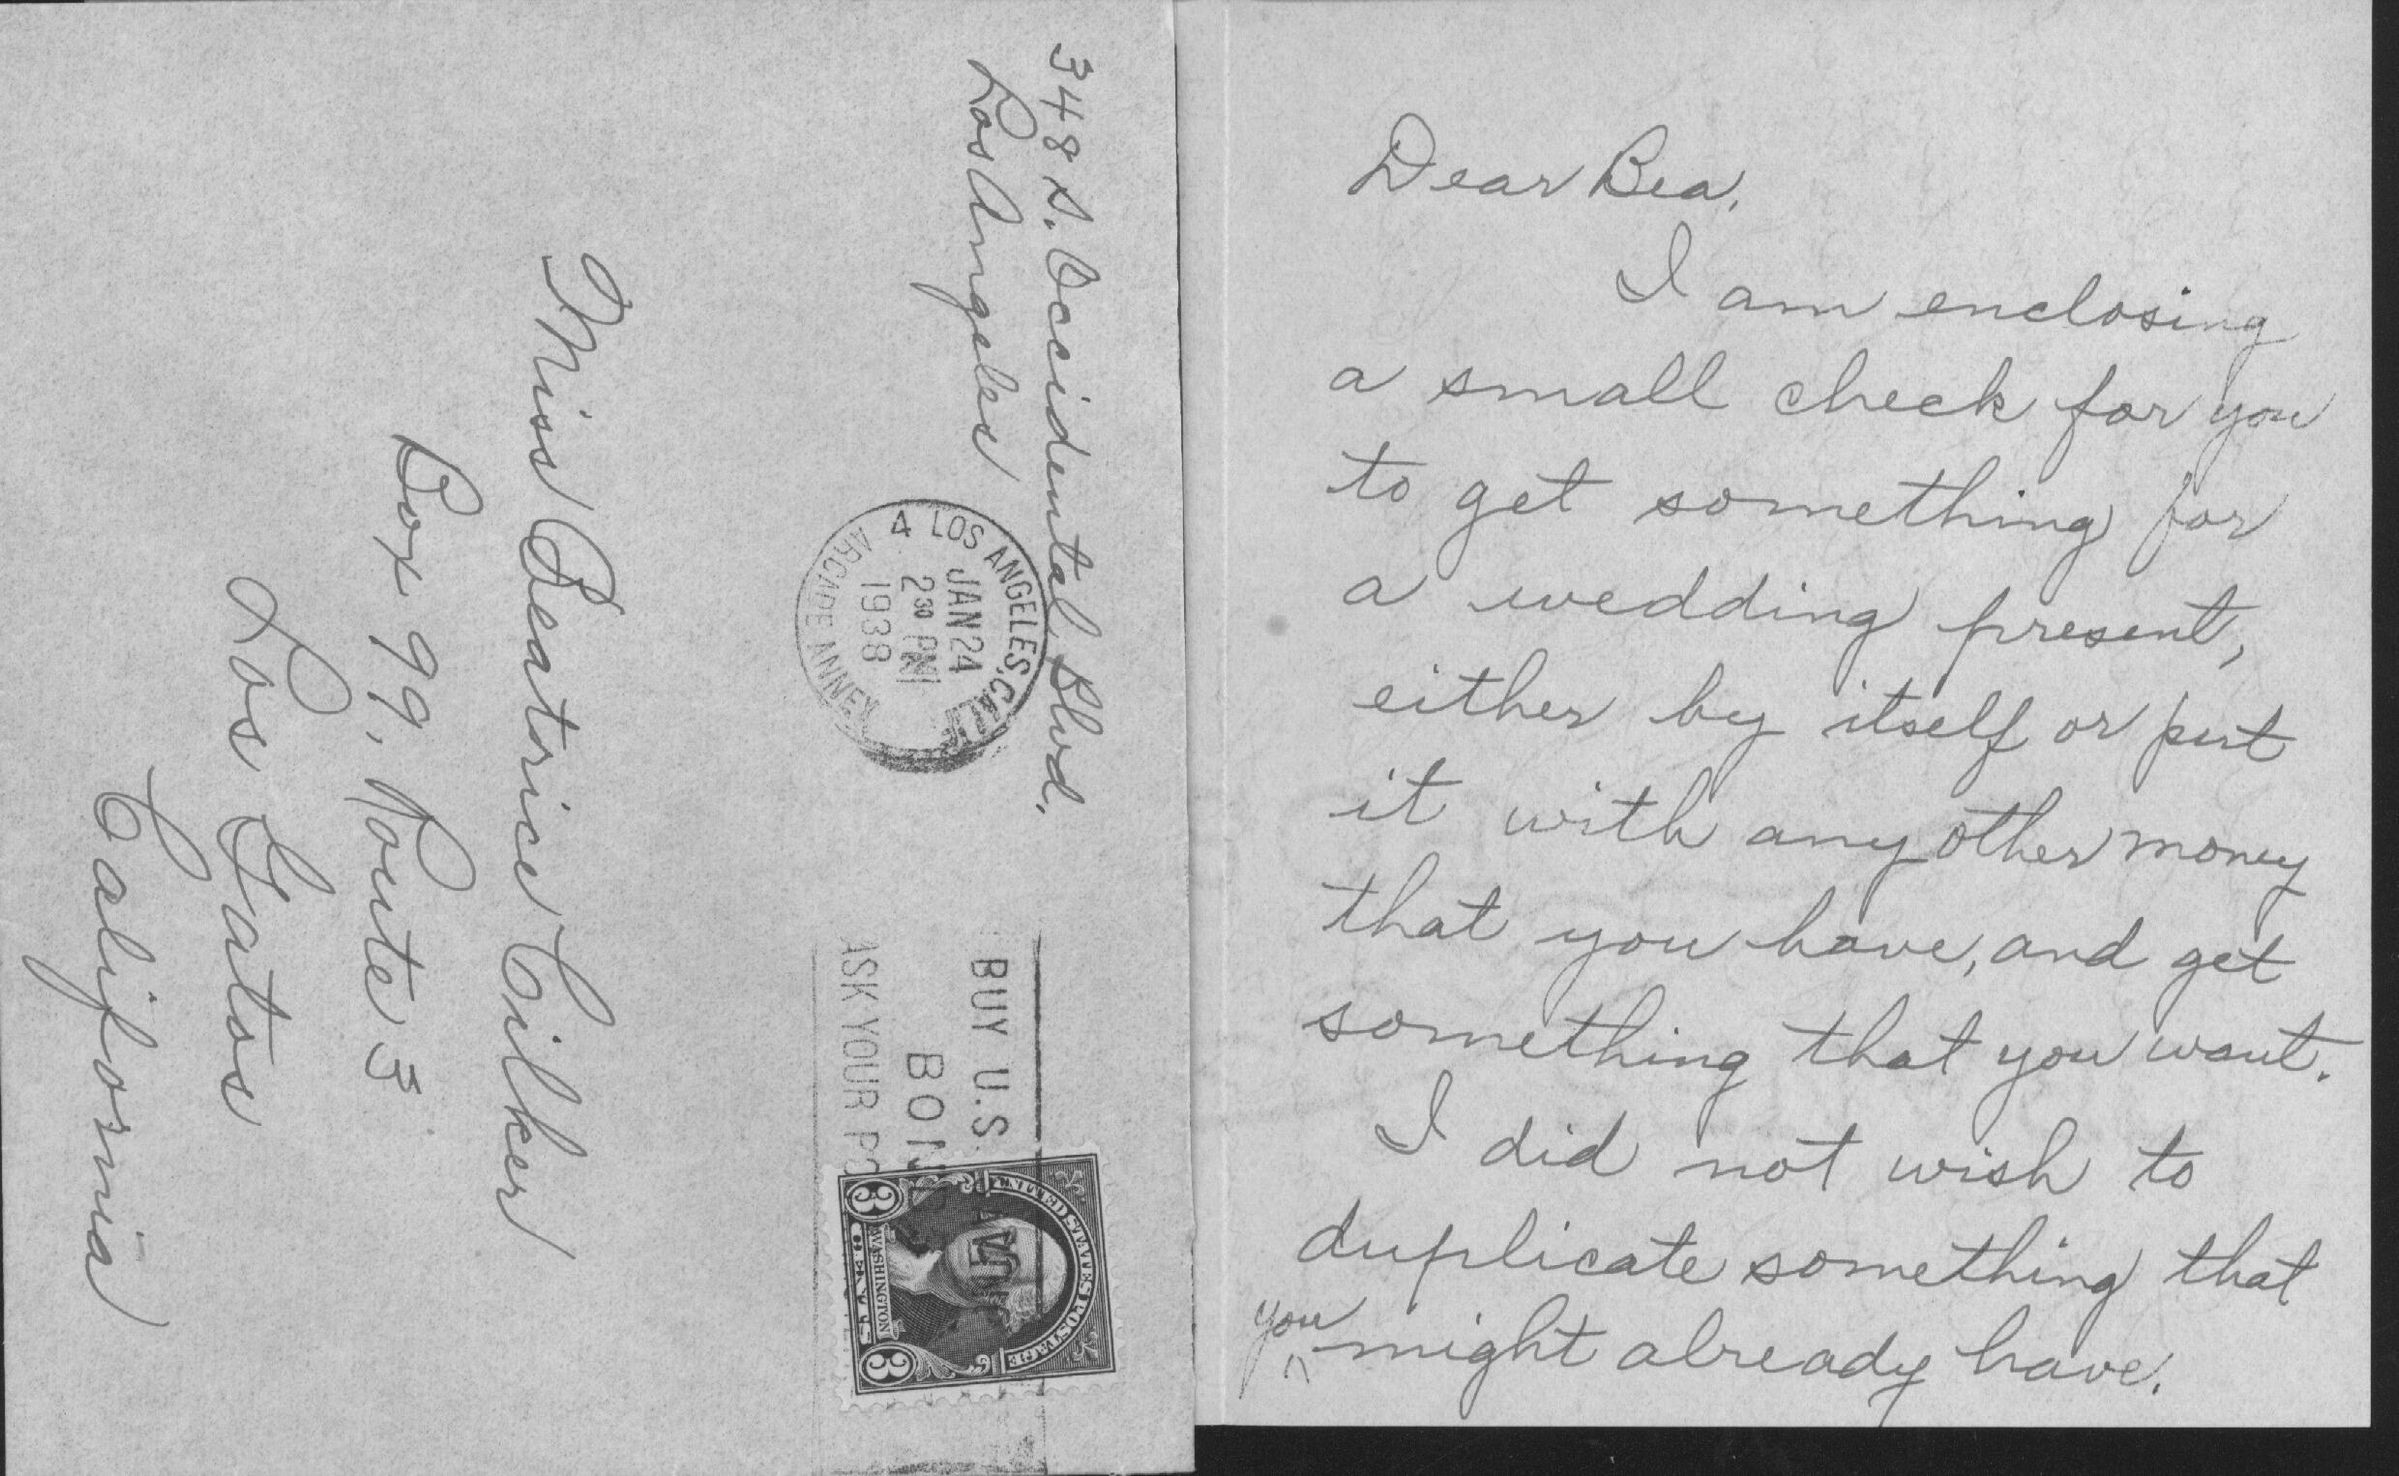 348 S. Occidental Blvd.
Los Angeles
LOS ANGELES, CALIF.
4
JAN 24
2 30 PM
1938
ARCADE ANNEX
BUY U.S.
BON
ASK YOUR PO
UNITED STATES POSTAGE
WASHINGTON
3 CENTS 3
Miss Beatrice Cilker
Box 99, Route 3
Los Gatos
California
Dear Bea,
I am enclosing
a small check for you
to get something for
a wedding present,
either by itself or put
it with any other money
that you have, and get
something that you want.
I did not wish to
duplicate something that
you might already have.